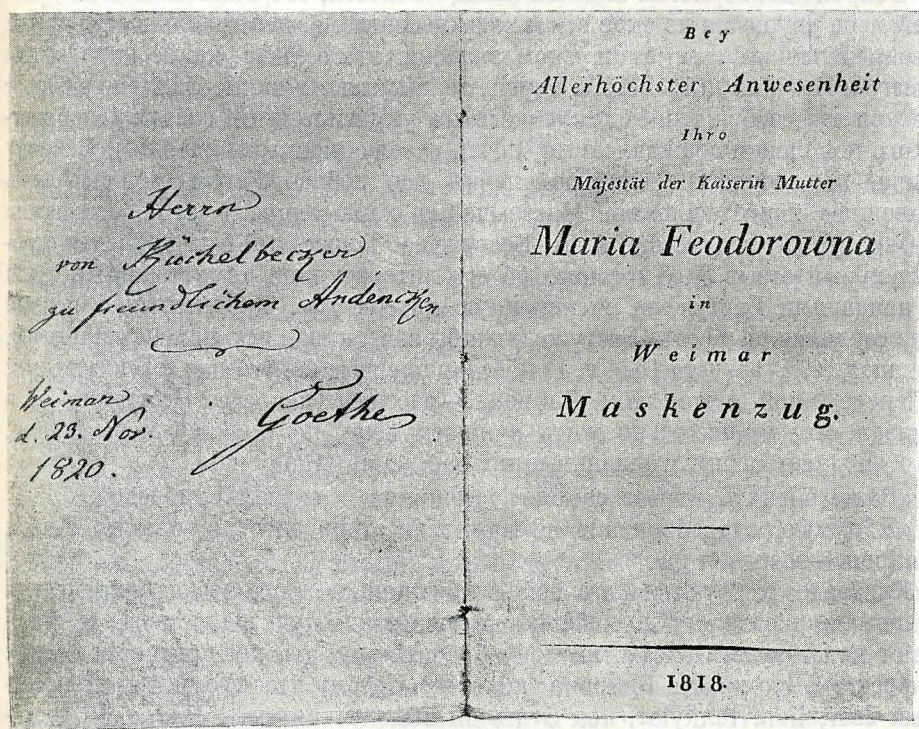 Herrn
von Küchelbecker
zu freundlichem Andencken
Weimar
d. 23. Nov.
1820.
Goethe
Bey
Allerhöchster Anwesenheit
Ihro
Majestät der Kaiserin Mutter
Maria Feodorowna
in
Weimar
Maskenzug.
1818.